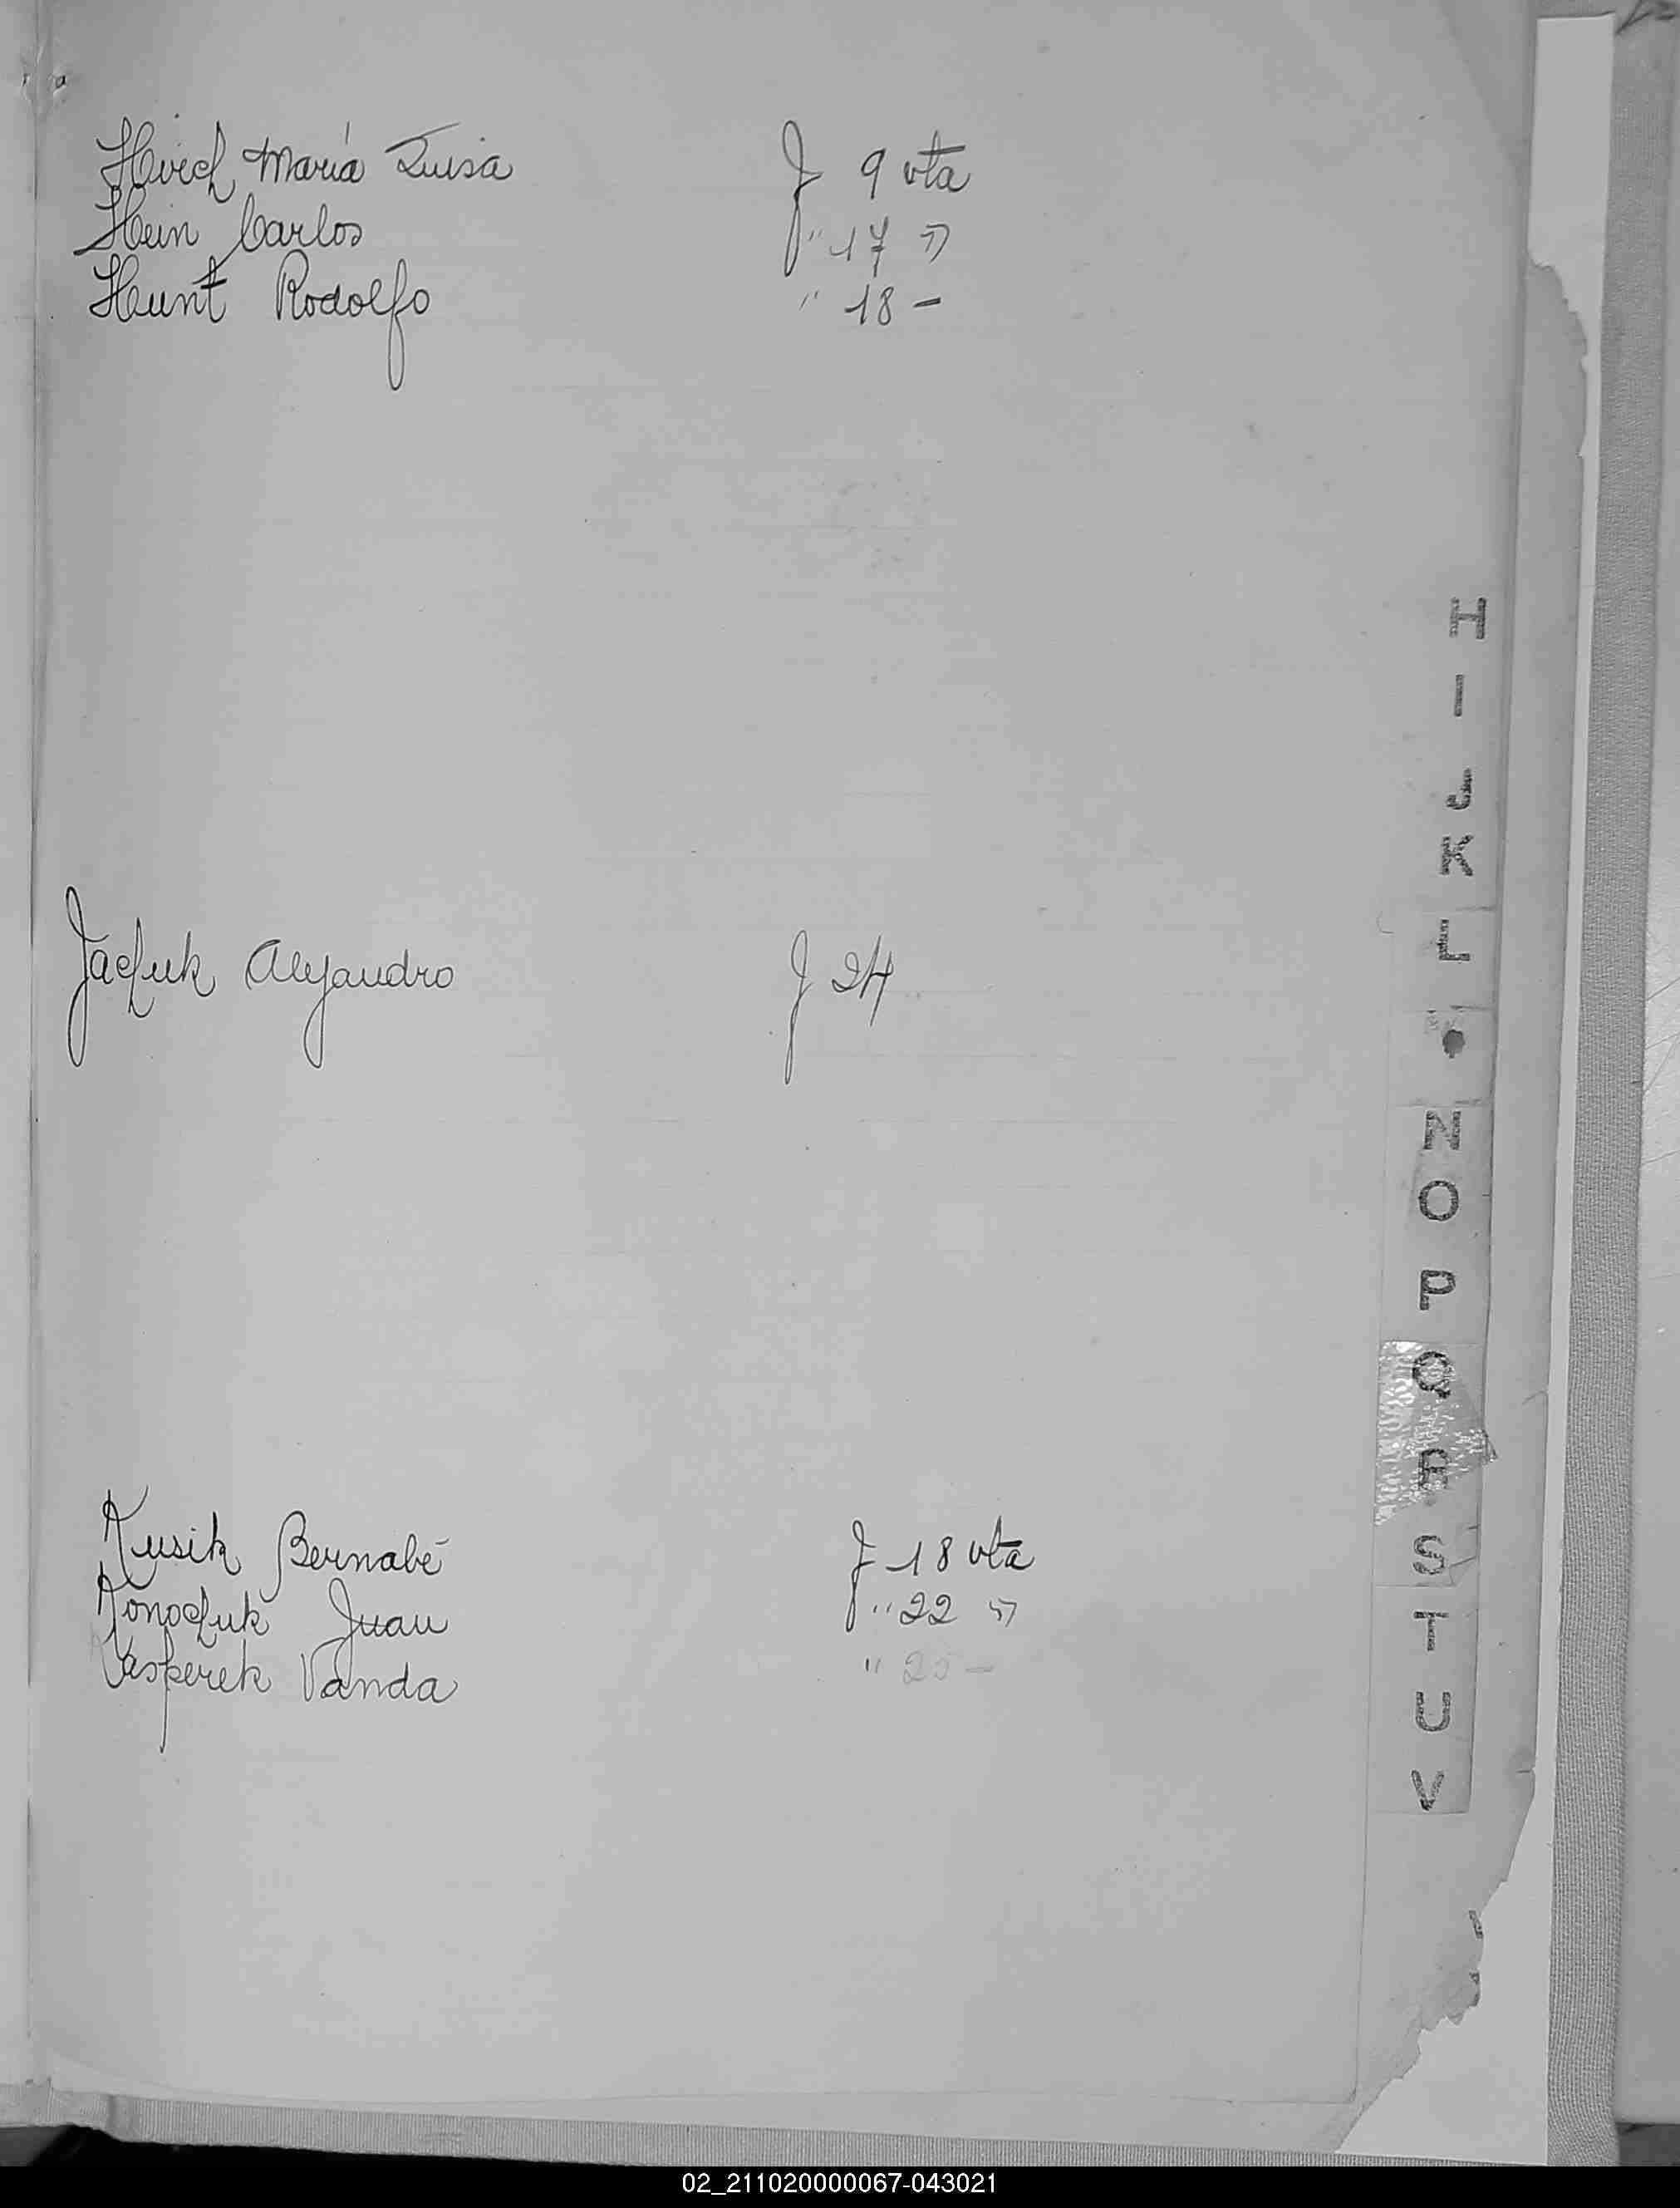 Hirch María Luisa f 9 vta
Hein Carlos f " 17 "
Hunt Rodolfo " 18 -
Jachuk Alejandro f 24
Kusik Bernabé f 18 vta
Konochuk Juan f " 22 "
Kasperek Vanda " 25 -
H
I
J
K
L
•
N
O
P
Q
R
S
T
U
V
02_211020000067-043021